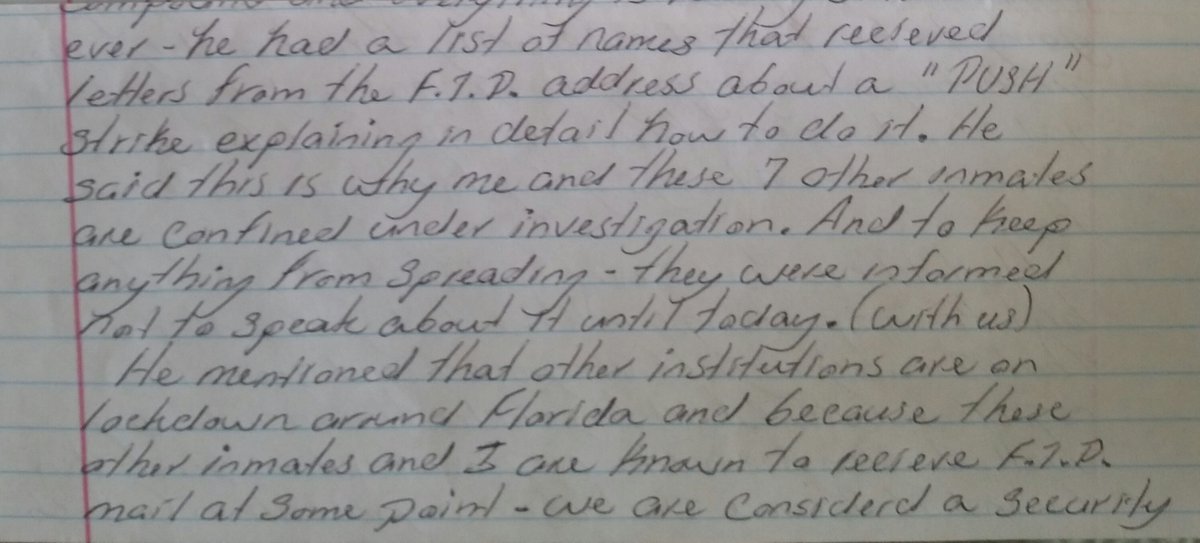 compound and everything is
ever - he had a list of names that recieved
letters from the F.I.D. address about a "PUSH"
strike explaining in detail how to do it. He
said this is why me and these 7 other inmates
are confined under investigation. And to keep
anything from spreading - they were informed
not to speak about it until today. (with us)
He mentioned that other institutions are on
lockdown around Florida and because these
other inmates and I are known to recieve F.I.D.
mail at some point - we are considerd a security